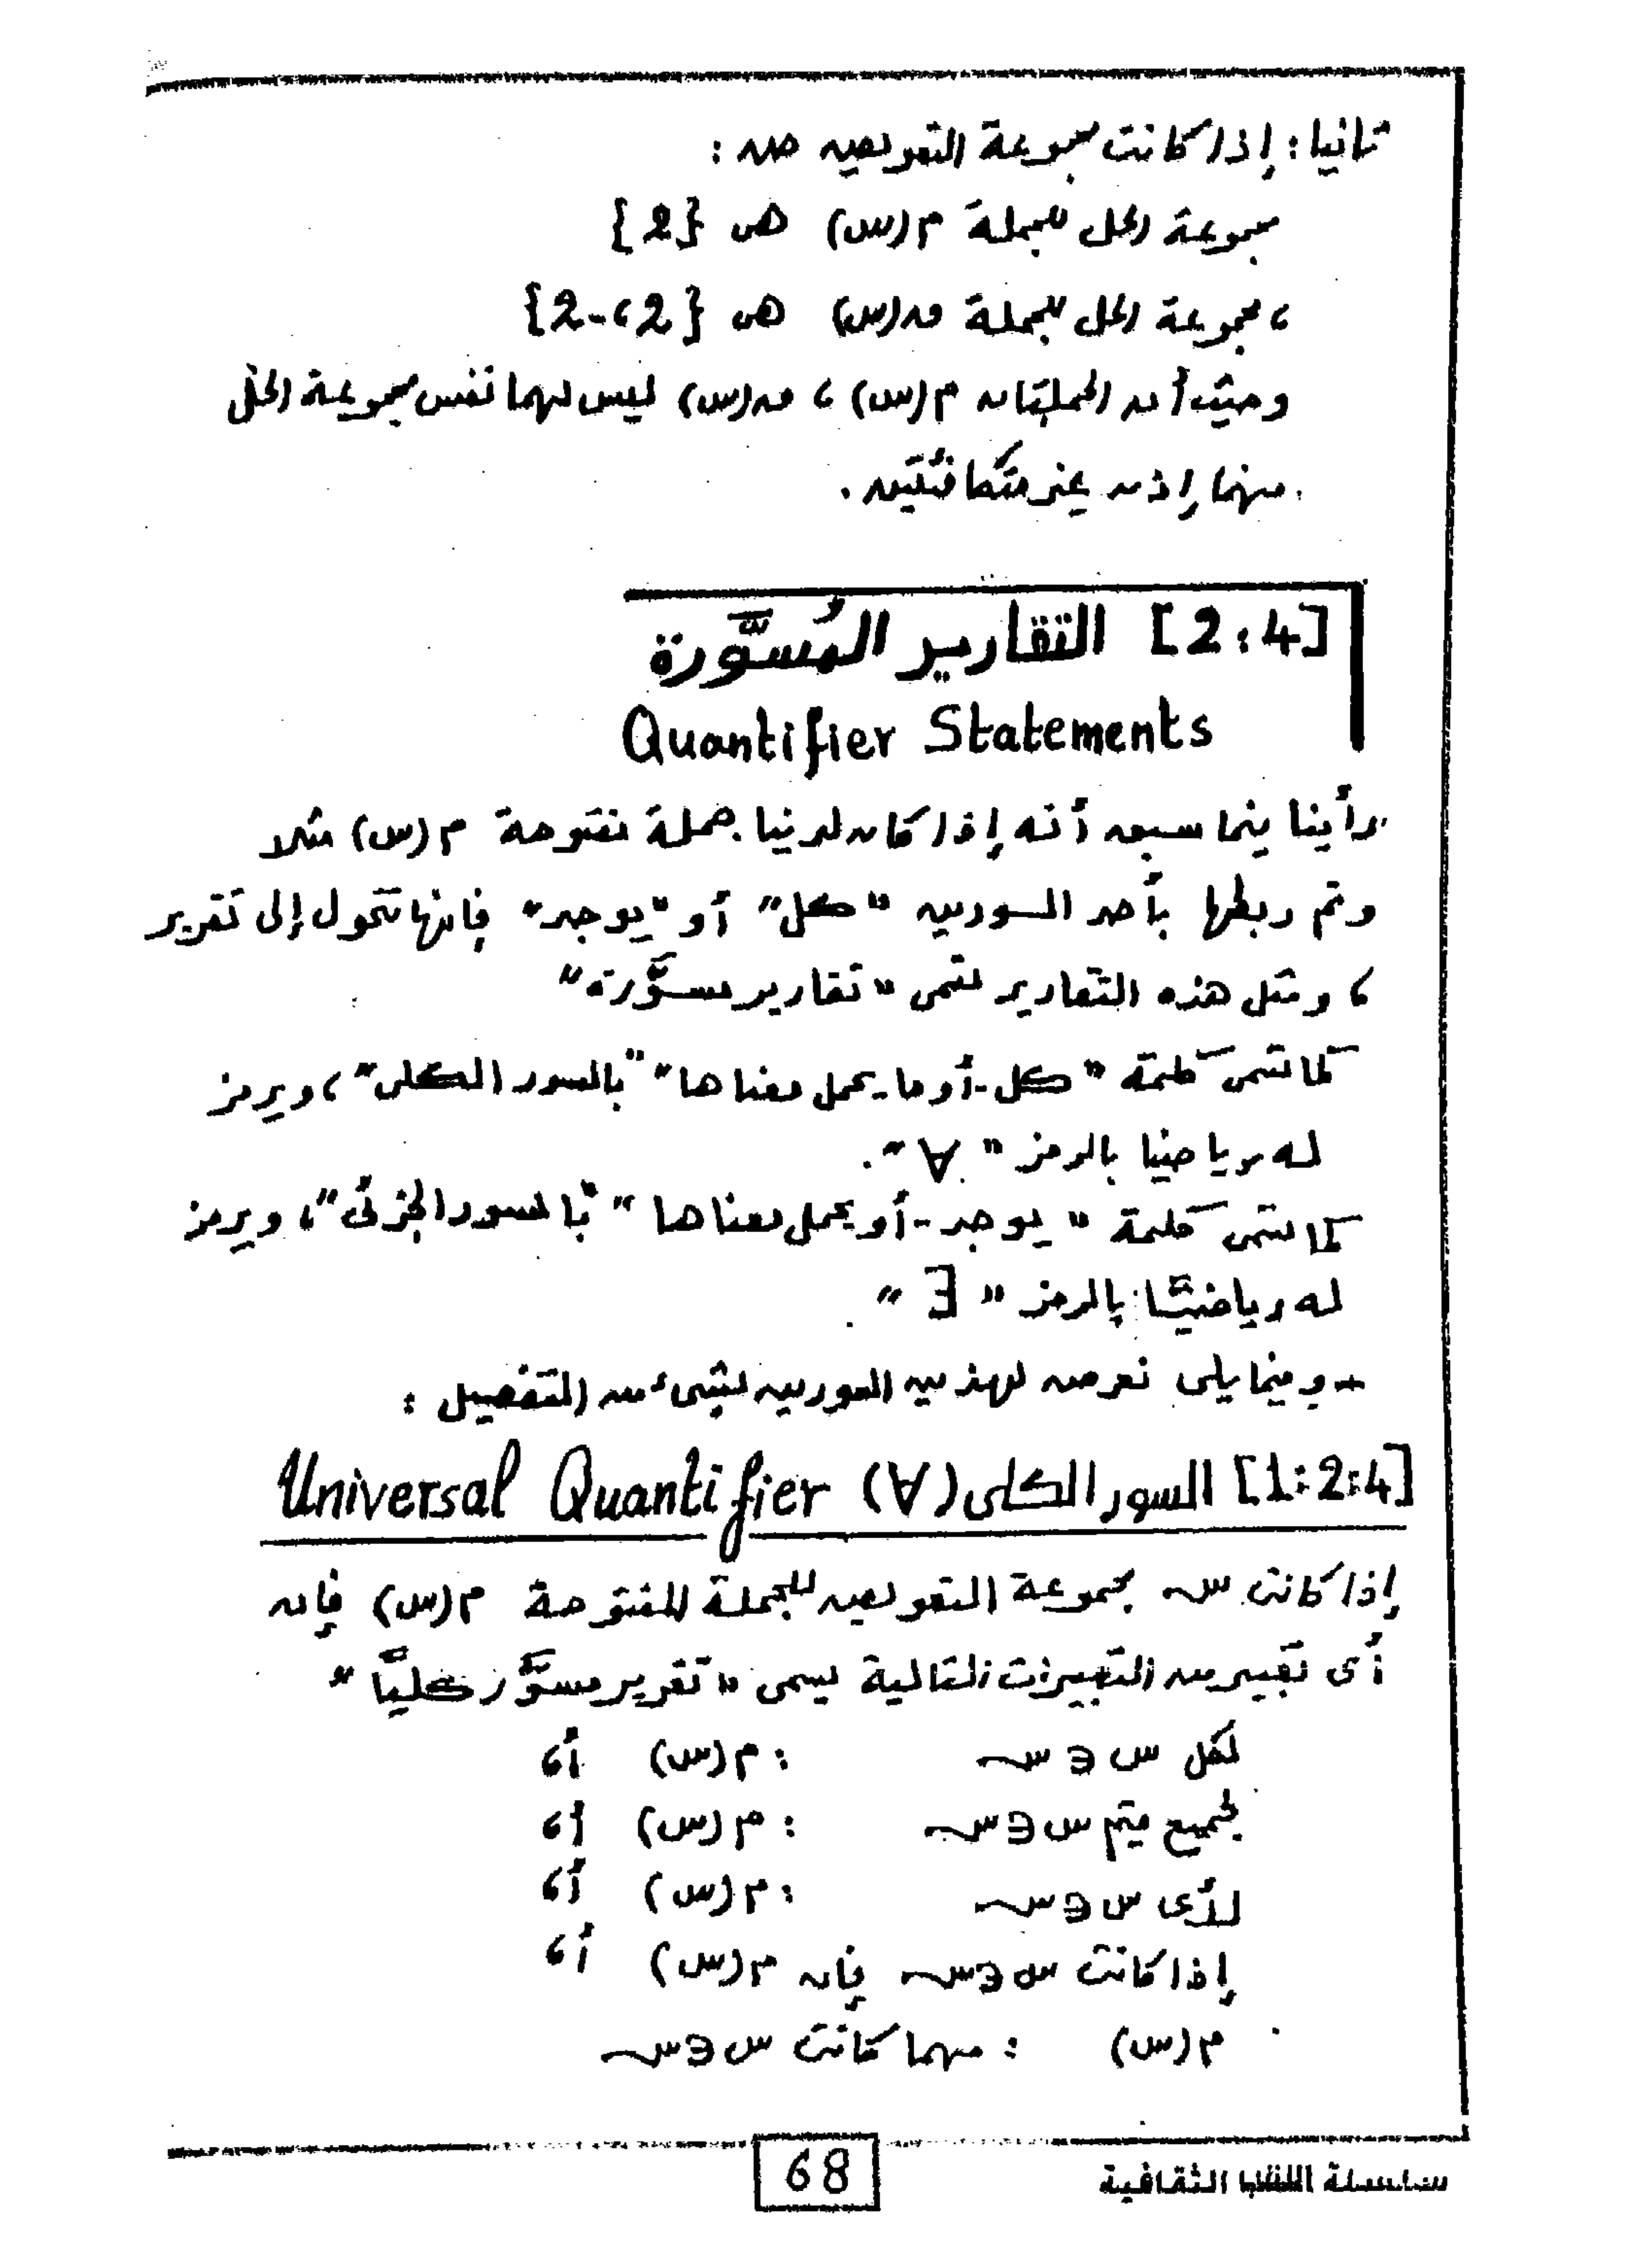 ثانيا : إذا كانت مجموعة التعويض صہ :
مجموعة الحل للجملة م (س) هى {2}
، مجموعة الحل للجملة ن (س) هى {2 ، -2}
وحيث أن الجملتان م (س) ، ن (س) ليس لهما نفس مجموعة الحل
فهما إذن غير متكافئتين .
[2:4] التقارير المُسوَّرة
Quantifier Statements
رأينا فيما سبق أنه إذا كان لدينا جملة مفتوحة م (س) مثلا
وتم ربطها بأحد السورين "كل" أو "يوجد" فإنها تتحول إلى تقرير
، ومثل هذه التقارير تسمى "تقارير مسوَّرة"
كما تسمى كلمة "كل - أو ما يحمل معناها" "بالسور الكلى" ، ويرمز
له رياضيا بالرمز "∀" .
كما تسمى كلمة "يوجد - أو يحمل معناها" "بالسور الجزئى" ، ويرمز
له رياضيًّا بالرمز "∃" .
- وفيما يلى نعرض لهذين السورين بشىء من التفصيل :
[1:2:4] السور الكلى (∀) Universal Quantifier
إذا كانت سہ مجموعة التعويض للجملة المفتوحة م (س) فإن
أى تعبير من التعبيرات التالية يسمى "تقرير مسوَّر كليًّا"
لكل س ∈ سہ : م (س) ، أ
لجميع قيم س ∈ سہ : م (س) ، أ
لأى س ∈ سہ : م (س) ، أ
إذا كانت س ∈ سہ فإن م (س) ، أ
م (س) : مهما كانت س ∈ سہ
68
سلسلة الثقافية